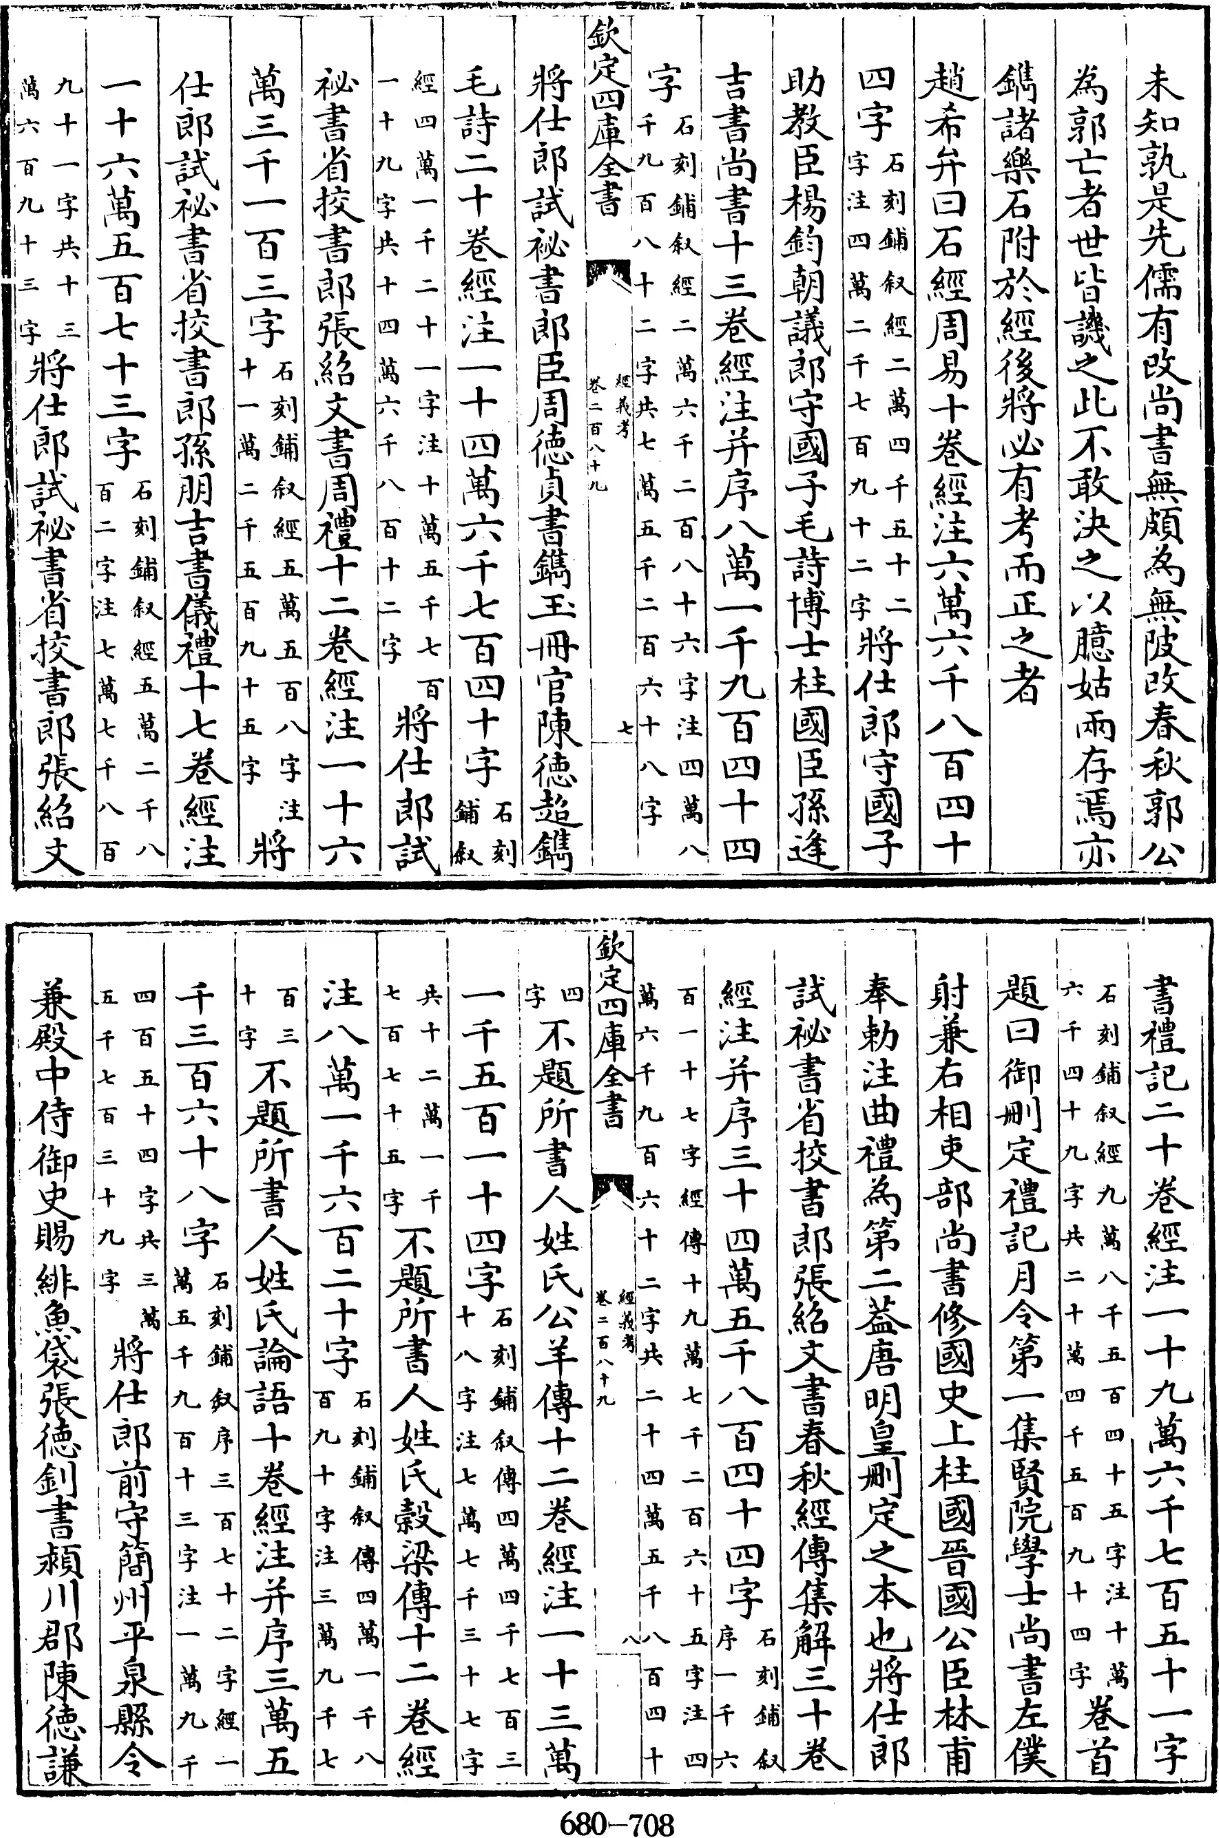 未知孰是先儒有改尚書無頗為無陂改春秋郭公
為郭亡者世皆譏之此不敢決之以臆姑兩存焉亦
鐫諸樂石附於經後將必有考而正之者
趙希弁曰石經周易十卷經注六萬六千八百四十
四字石刻鋪叙經二萬四千五十二字注四萬二千七百九十二字將仕郎守國子
助教臣楊鈞朝議郎守國子毛詩博士柱國臣孫逢
吉書尚書十三卷經注并序八萬一千九百四十四
字石刻鋪叙經二萬六千二百八十六字注四萬八千九百八十二字共七萬五千二百六十八字
欽定四庫全書 經義考 卷二百八十九 七
將仕郎試祕書郎臣周德貞書鐫玉冊官陳德超鐫
毛詩二十卷經注一十四萬六千七百四十字石刻鋪叙
經四萬一千二十一字注十萬五千七百一十九字共十四萬六千八百十二字將仕郎試
祕書省挍書郎張紹文書周禮十二卷經注一十六
萬三千一百三字石刻鋪叙經五萬五百八字注十一萬二千五百九十五字將
仕郎試祕書省挍書郎孫朋吉書儀禮十七卷經注
一十六萬五百七十三字石刻鋪叙經五萬二千八百二字注七萬七千八百
九十一字共十三萬六百九十三字將仕郎試祕書省挍書郎張紹文
書禮記二十卷經注一十九萬六千七百五十一字
石刻鋪叙經九萬八千五百四十五字注十萬六千四十九字共二十萬四千五百九十四字卷首
題曰御刪定禮記月令第一集賢院學士尚書左僕
射兼右相吏部尚書修國史上柱國晉國公臣林甫
奉勅注曲禮為第二蓋唐明皇刪定之本也將仕郎
試祕書省挍書郎張紹文書春秋經傳集解三十卷
經注并序三十四萬五千八百四十四字石刻鋪叙序一千六
百一十七字經傳十九萬七千二百六十五字注四萬六千九百六十二字共二十四萬五千八百四十
欽定四庫全書 經義考 卷二百八十九 八
四字不題所書人姓氏公羊傳十二卷經注一十三萬
一千五百一十四字石刻鋪叙傳四萬四千七百三十八字注七萬七千三十七字
共十二萬一千七百七十五字不題所書人姓氏穀梁傳十二卷經
注八萬一千六百二十字石刻鋪叙傳四萬一千八百九十字注三萬九千七
百三十字不題所書人姓氏論語十卷經注并序三萬五
千三百六十八字石刻鋪叙序三百七十二字經一萬五千九百十三字注一萬九千
四百五十四字共三萬五千七百三十九字將仕郎前守簡州平泉縣令
兼殿中侍御史賜緋魚袋張德釗書潁川郡陳德謙
680—708